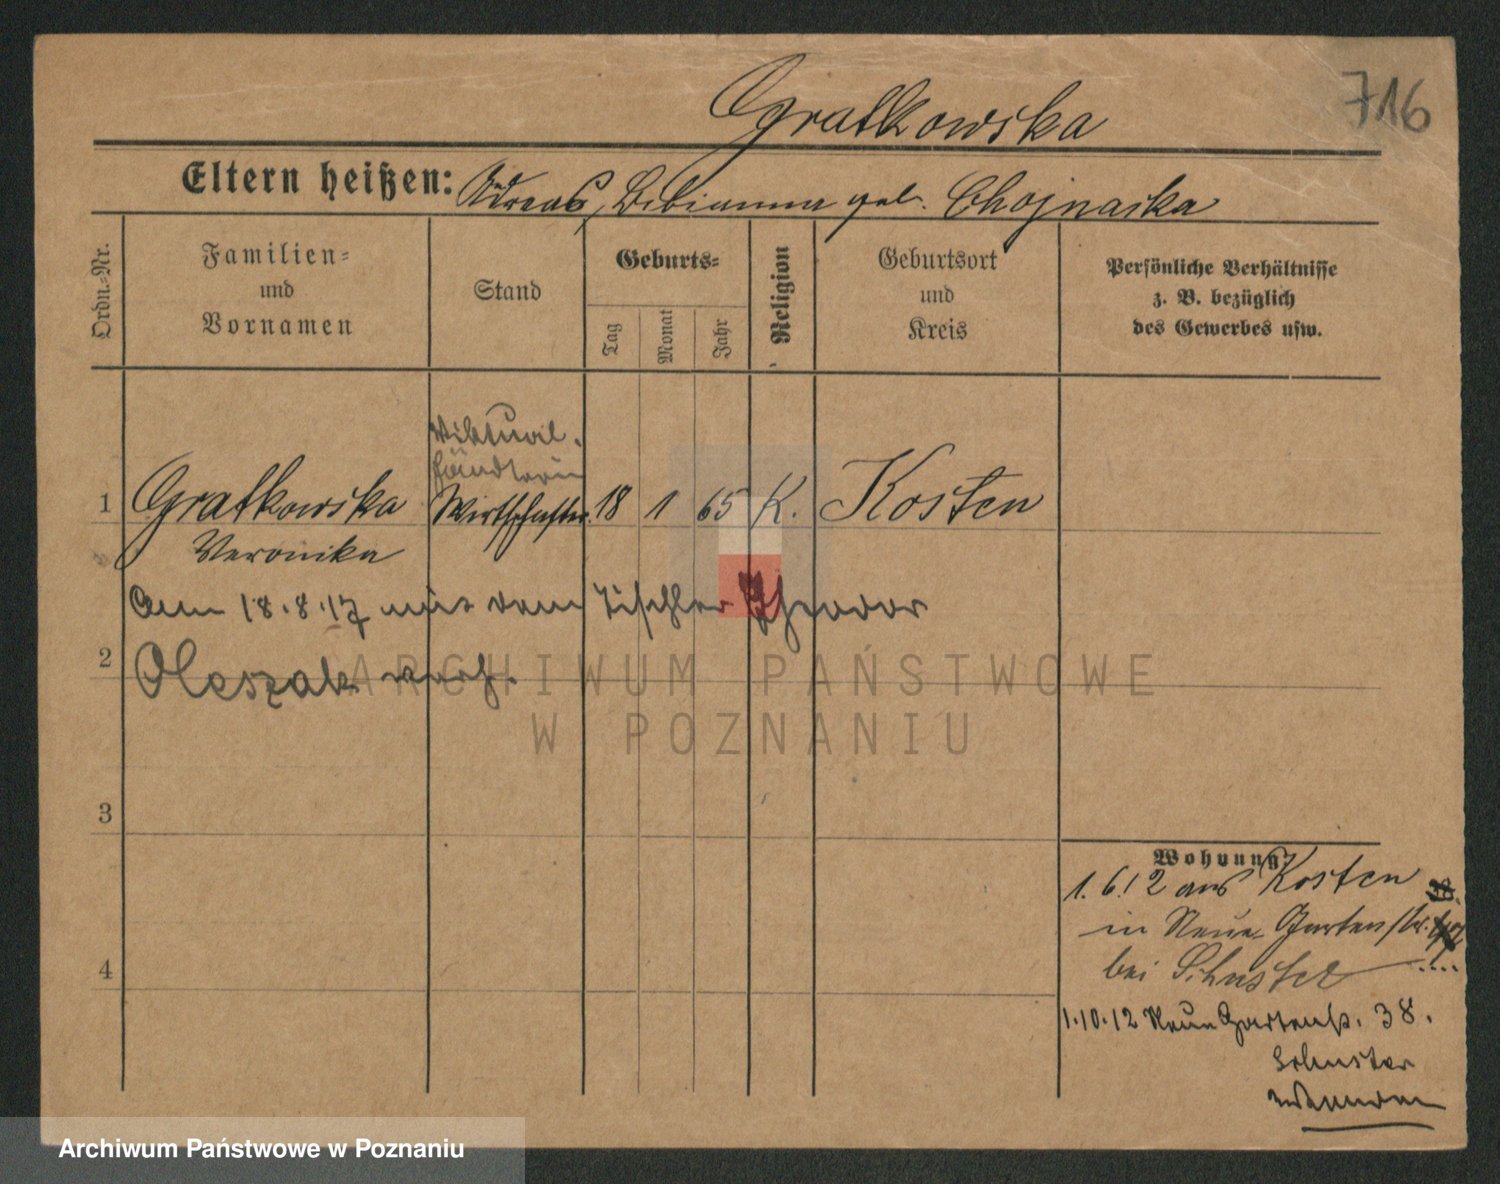 716
Gratkowska
Eltern heißen: Andreas, Bibianna geb. Chojnacka
Ordn.=Nr.
Familien=
und
Vornamen
Stand
Geburts=
Tag
Monat
Jahr
Religion
Geburtsort
und
Kreis
Persönliche Verhältnisse
z. B. bezüglich
des Gewerbes usw.
Viktual.
händlerin
1 Gratkowska Wirtschafter. 18 1 65 K. Kosten
Veronika
Am 18.8.17 mit dem Tischler Theodor
2 Oleszak verh.
3
4
Wohnung
1.6.12 aus Kosten
in Neue Gartenstr.
bei Schuster
1.10.12 Neue Gartenstr. 38.
Schuster
ARCHIWUM PAŃSTWOWE
W POZNANIU
Archiwum Państwowe w Poznaniu